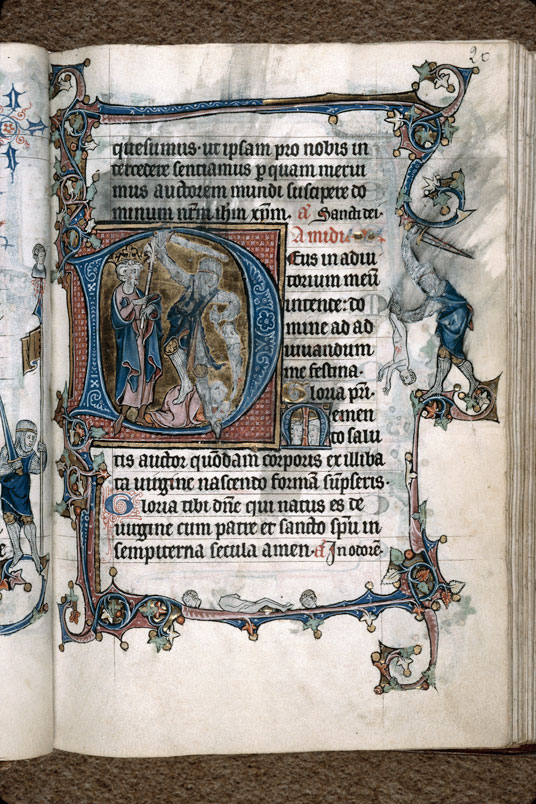 20
quesumus · ut ipsam pro nobis in
tercedere sentiamus p quam merui
mus auctorem mundi suscipere do
minum nrm ihm xpm. a. Sancta dei.
A midi.
Deus in adiu
torium meu
intende: do
mine ad ad
iuuandum
me festina.
Gloria pri.
Memen
to salu
tis auctor quodam corporis ex illiba
ta uirgine nascendo formam supseris.
Gloria tibi dne qui natus es de
uirgine cum patre et sancto spu in
sempiterna secula amen. a. In odore.